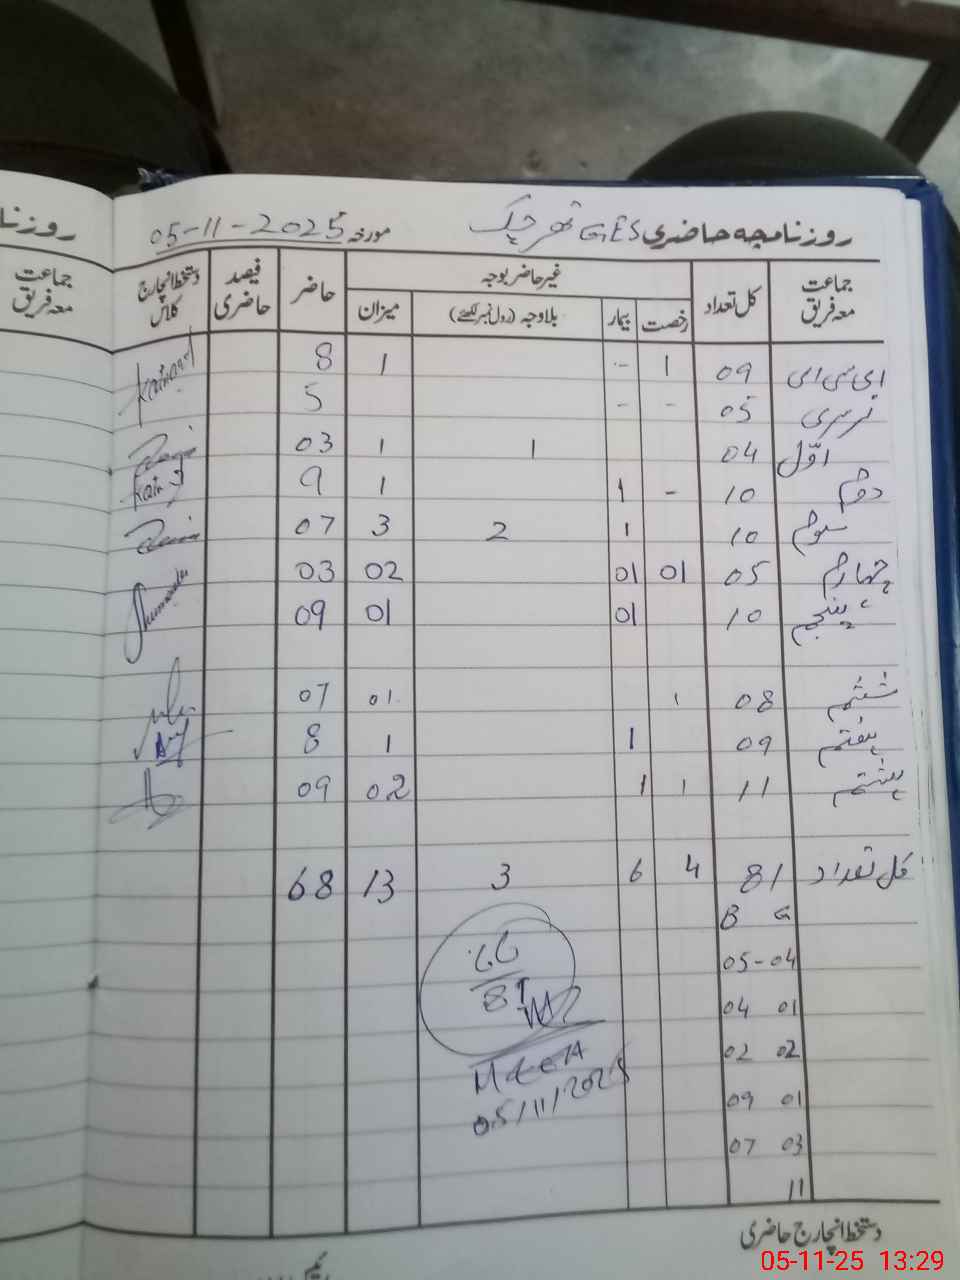 روزنامچہ حاضری GES تھر چک مورخہ 05-11-2025
روزنا
جماعت معہ فریق
جماعت معہ فریق کل تعداد غیر حاضر بوجہ حاضر فیصد حاضری دستخط انچارج کلاس
رخصت بیمار بلاوجہ (رول نمبر لکھئے) میزان
ای سی ای 09 1 - 1 8 Kainat
نرسری 05 - - 5
اوّل 04 1 1 03
دوم 10 - 1 1 9 Kainat
سوم 10 1 2 3 07
چہارم 05 01 01 02 03
پنجم 10 01 01 09
ششم 08 1 01 07
ہفتم 09 1 1 8
ہشتم 11 1 1 02 09
کل تعداد 81 4 6 3 13 68
B G
05-04
04 01
02 02
09 01
07 03
11
81
MEA
05/11/2025
دستخط انچارج حاضری
05-11-25 13:29